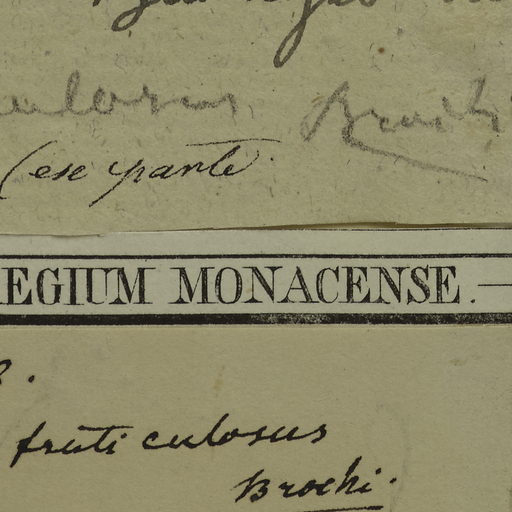 ulosus Brochi
(ex parte
EGIUM MONACENSE.—
fruticulosus
Brochi.